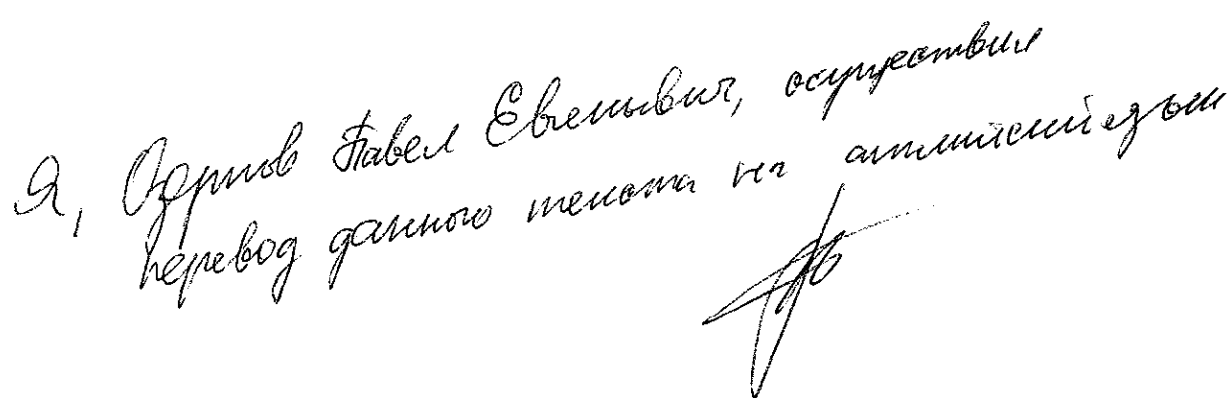 Я, Павел Евгеньевич, осуществил
перевод данного текста на английский язык